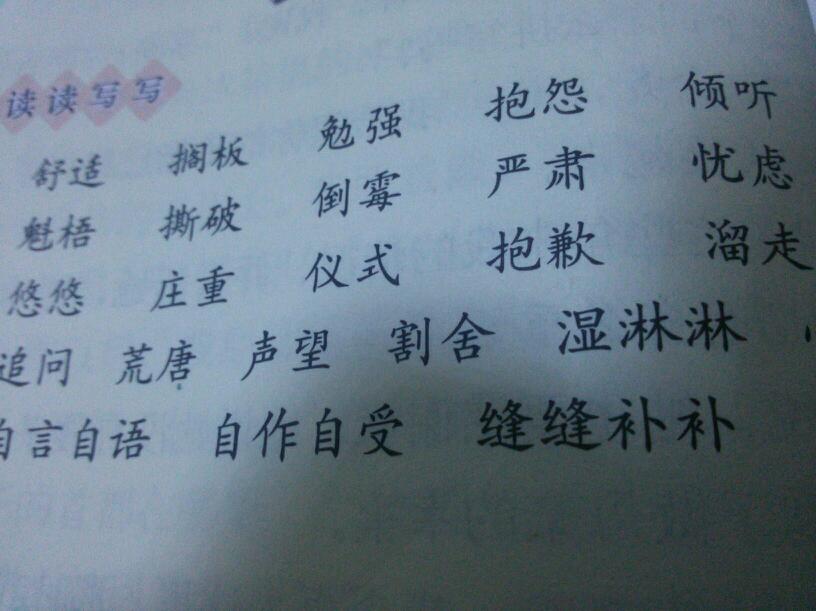 读读写写
舒适 搁板 勉强 抱怨 倾听
魁梧 撕破 倒霉 严肃 忧虑
悠悠 庄重 仪式 抱歉 溜走
追问 荒唐 声望 割舍 湿淋淋
自言自语 自作自受 缝缝补补